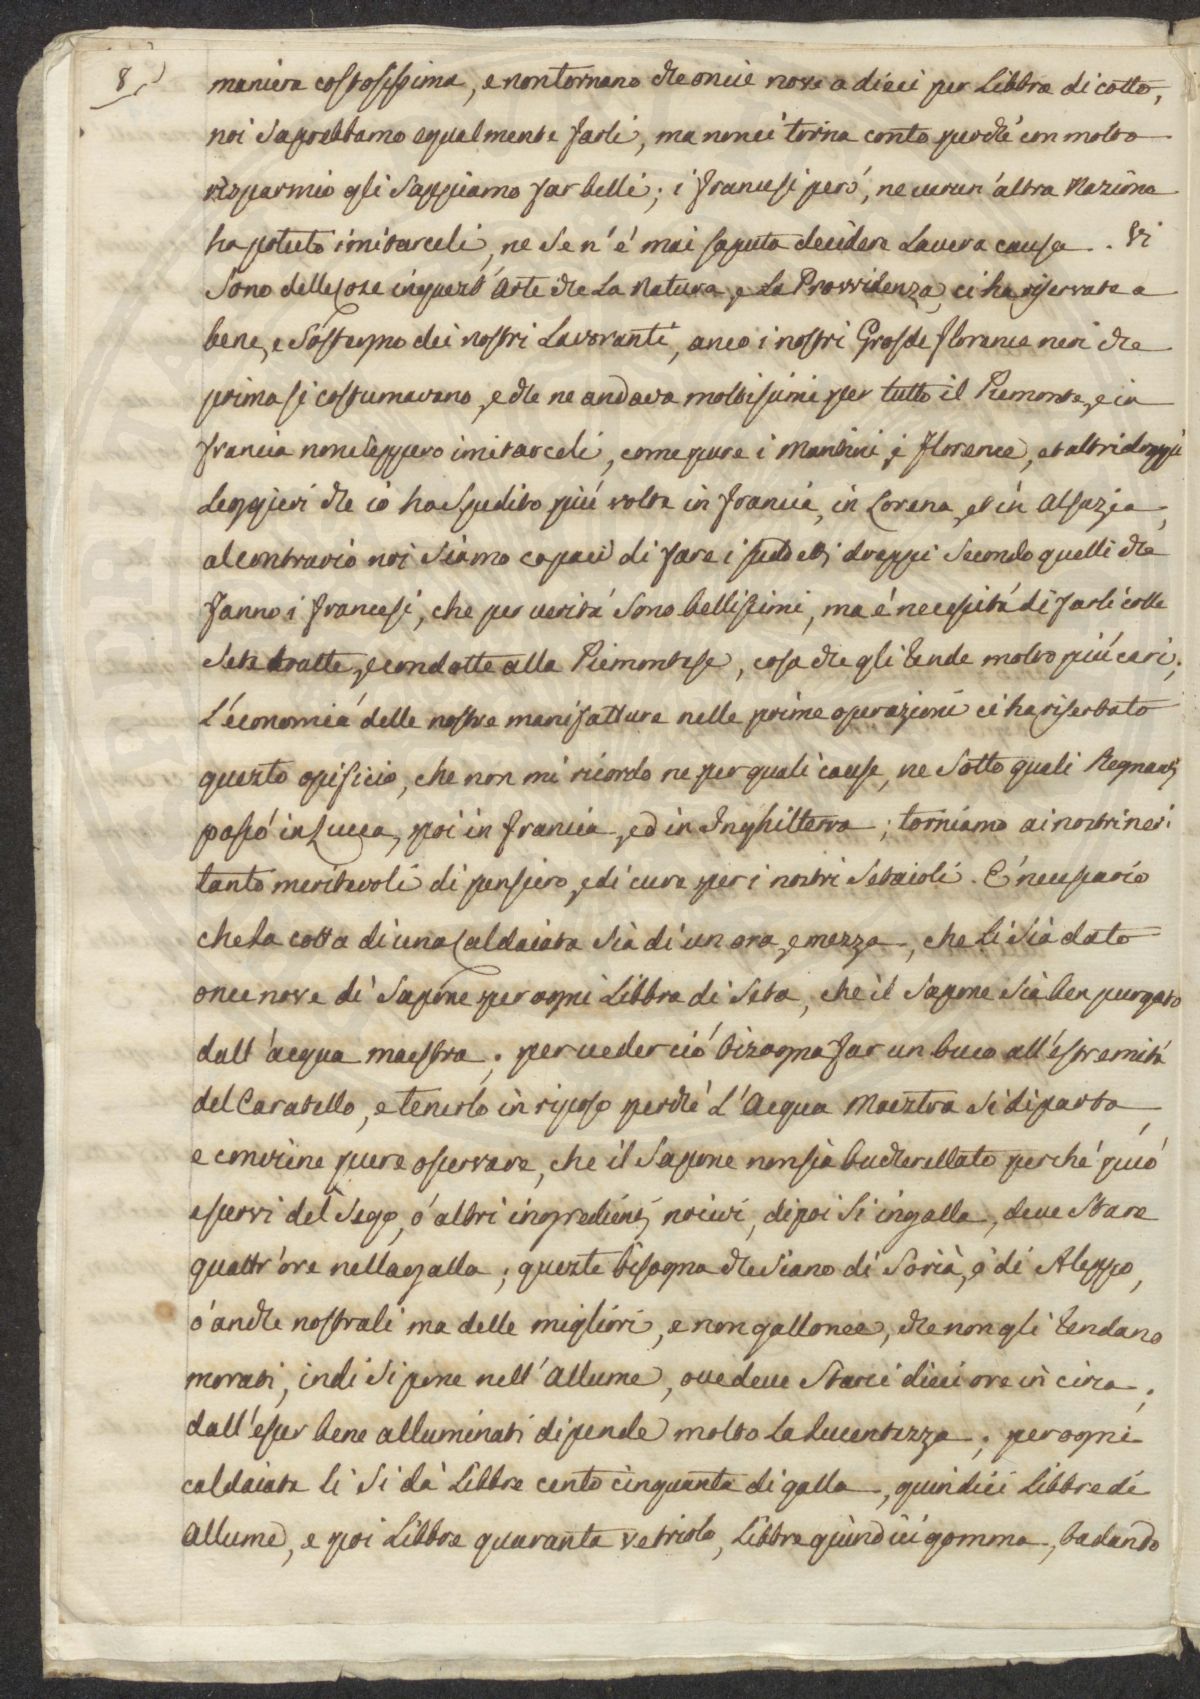 8
maniera costosissima, e non tornano che oncie nove a dieci per Libbra di cotto,
noi sapressamo egualmente farli, ma non ci torna conto perché con molto
risparmio gli sappiamo far belli; i francesi però, ne verun' altra Nazione
ha potuto imitarceli, ne se n'é mai saputa decidere La vera causa. Vi
sono delle cose in quest' Arte che La Natura, e La Provvidenza, ci ha riservate a
bene, e sostegno dei nostri Lavoranti, anco i nostri Gros de florence neri che
prima si costumavano, e che ne andava moltissimi per tutto il Piemonte, e in
francia non seppero imitarceli, come pure i Mantini, i florence, et altri drappi
Leggieri che io ho spedito più volte in francia, in Lorena, et in Alsazia,
al contrario noi siamo capaci di fare i sudetti drappi secondo quelli che
fanno i francesi, che per verità sono bellissimi, ma é necessità di farli colle
Sete tratte, e condotte alla Piemontese, cosa che gli rende molto più cari.
L'economia delle nostre manifatture nelle prime operazioni ci ha riserbato
questo opificio, che non mi ricordo ne per quali cause, ne sotto quali Regnanti
passó in Lucca, poi in francia, ed in Inghilterra; torniamo ai nostri neri
tanto meritevoli di pensiero, e di cure per i nostri Setaioli. É necessario
che La cotta di una Caldaiata sia di un ora, e mezza, che li sia dato
once nove di Sapone per ogni Libbra di Seta, che il Sapone sia ben purgato
dall'acqua maestra; per veder ció bisogna far un buco all'estremità
del Caratello, e tenerlo in riposo perché L'Acqua Maestra si diparta,
e conviene pure osservare, che il Sapone non sia bucherellato perché puó
esservi del Sego, ó altri ingredienti nocivi, dipoi si ingalla, deve stare
quattr'ore nella galla; queste bisogna che siano di Sorià, o di Aleppo,
ó anche nostrali ma delle migliori, e non gallonee, che non gli rendano
morati, indi si pone nell'Allume, ove deve starci dieci ore in circa.
dall'esser bene alluminati dipende molto La Lucentezza; per ogni
caldaiata li si dà Libbre cento cinquanta di galla, quindici Libbre di
Allume, e poi Libbre quaranta vetriolo, Libbre quindici gomma, badando